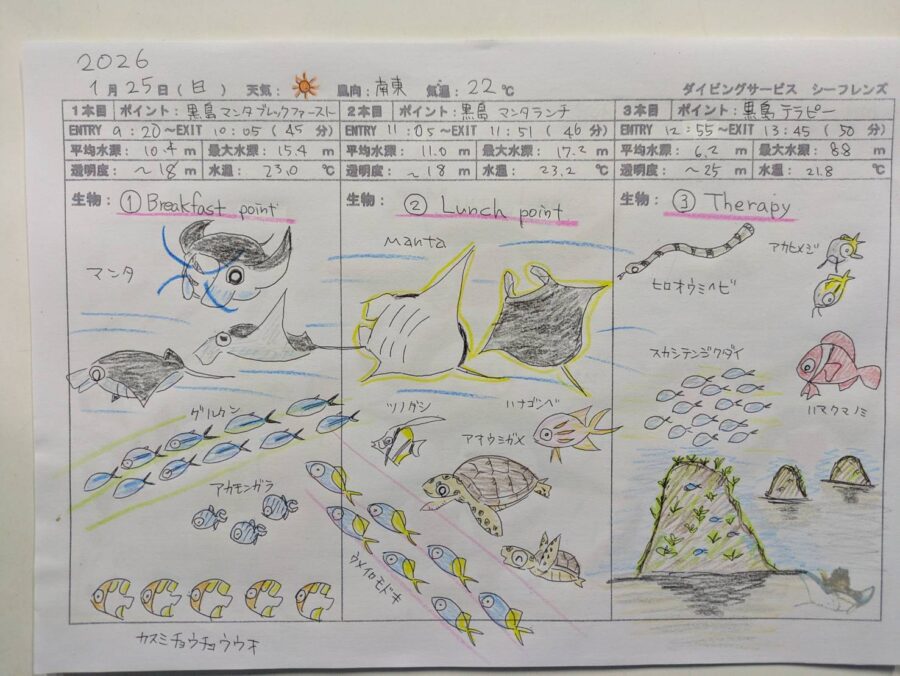 2026
1月25日(日) 天気: 風向:南東 気温:22℃ ダイビングサービス シーフレンズ
1本目 ポイント:黒島マンタブレックファースト 2本目 ポイント:黒島 マンタランチ 3本目 ポイント:黒島 テラピー
ENTRY 9:20~EXIT 10:05(45分) ENTRY 11:05~EXIT 11:51(46分) ENTRY 12:55~EXIT 13:45(50分)
平均水深: 10.4 m 最大水深: 15.4 m 平均水深: 11.0 m 最大水深: 17.2 m 平均水深: 6.2 m 最大水深: 8.8 m
透明度: ~18 m 水温: 23.0 ℃ 透明度: ~18 m 水温: 23.2 ℃ 透明度: ~25 m 水温: 21.8 ℃
生物: ①Breakfast point
マンタ
グルクン
アカモンガラ
カスミチョウチョウウオ
生物: ② Lunch point
Manta
ツノダシ
ハナゴンベ
アオウミガメ
ウメイロモドキ
生物: ③ Therapy
アカヒメジ
ヒロオウミヘビ
スカシテンジクダイ
ハマクマノミ